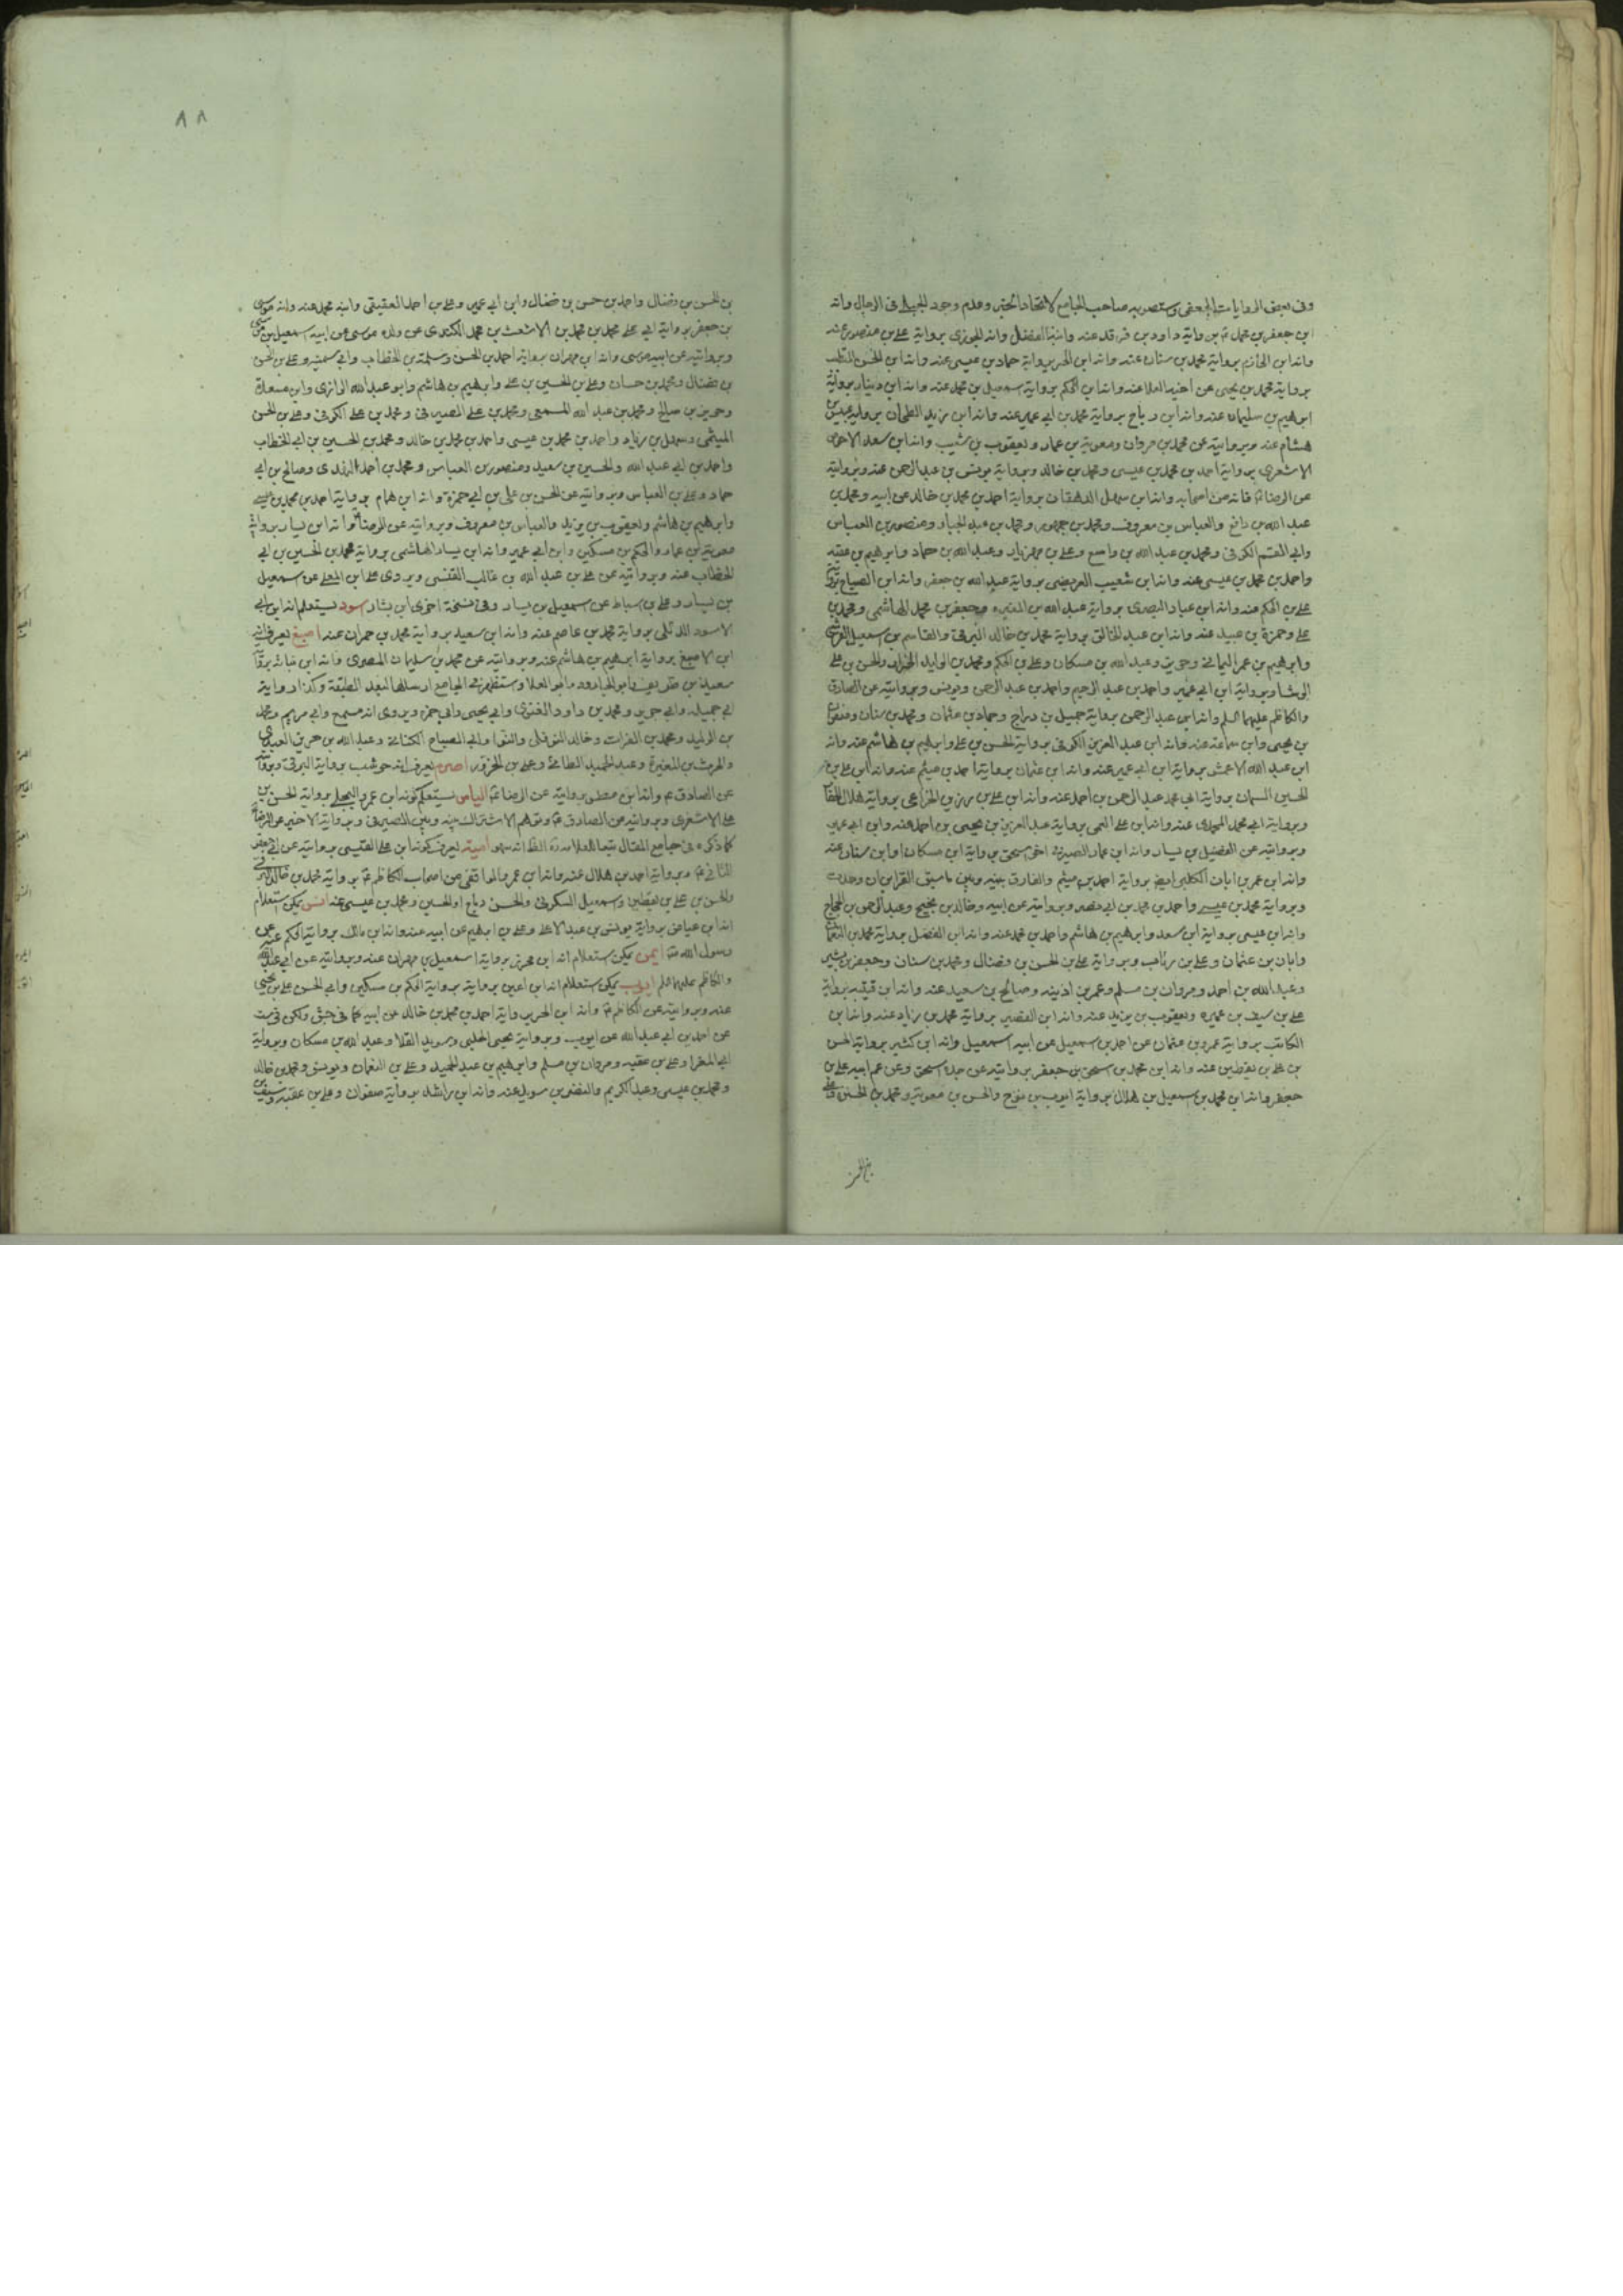 وفى بعض الروايات الجعفى وستصوبه صاحب الجامع لاتحاد الخبر وعدم وجود الجبلى فى الرجال وانه
ابن جعفر بن محمد برواية داود بن فرقد عنه وانه المفضل وانه الجوزى برواية على بن منصور عنه
وانه ابن الخازم برواية محمد بن سنان عنه وانه ابن الحر برواية حماد بن عيسى عنه وانه ابن الحسن المتطبب
برواية محمد بن يحيى عن اخيه العلا عنه وانه ابن الحكم برواية اسمعيل بن محمد عنه وانه ابن دينار برواية
ابرهيم بن سليمان عنه وانه ابن رباح برواية محمد بن ابى عمير عنه وانه ابن يزيد الطحان برواية عبيس بن
هشام عنه وبروايته عن محمد بن مروان ومعوية بن عمار ويعقوب بن شعيب وانه ابن سعد الاحوص
الاشعرى برواية احمد بن محمد بن عيسى ومحمد بن خالد وبرواية يونس بن عبد الرحمن عنه وبروايته
عن الرضا فانه من اصحابه وانه ابن سهل الدهقان برواية احمد بن محمد بن خالد عن ابيه ومحمد بن
عبد الله بن رافع والعباس بن معروف ومحمد بن جمهور ومحمد بن عبد الجبار ومنصور بن العباس
وابى القسم الكوفى ومحمد بن عبد الله بن واسع وعلى بن مهزيار وعبد الله بن حماد وابرهيم بن عقبه
واحمد بن محمد بن عيسى عنه وانه ابن شعيب العريضى برواية عبد الله بن جعفر وانه ابن الصباح برواية
على بن الحكم عنه وانه ابن عباد البصرى برواية عبد الله بن المغيره وجعفر بن محمد الهاشمى ومحمد بن
على وحمزة بن عبيد عنه وانه ابن عبد الخالق برواية محمد بن خالد البرقى والقاسم بن اسمعيل القرشى
وابرهيم بن عمر اليمانى وحريز وعبد الله بن مسكان وعلى بن الحكم ومحمد بن الوليد الخزاز والحسن بن على
الوشا وبرواية ابن ابى عمير واحمد بن عبد الرحيم واحمد بن عبد الرحمن ويونس وبروايته عن الصادق
والكاظم عليهما السلم وانه ابن عبد الرحمن برواية جميل بن دراج وحماد بن عثمان ومحمد بن سنان وصفوان
بن يحيى وابن سماعة عنه وانه ابن عبد العزيز الكوفى برواية الحسن بن على وابرهيم بن هاشم عنه وانه
ابن عبد الله الاعمش برواية ابن ابى عمير عنه وانه ابن عثمان برواية احمد بن ميثم عنه وانه ابن على بن
الحسين السمان برواية ابى محمد عبد الرحمن بن احمد عنه وانه ابن على بن رزين الخزاعى برواية هلال الحفار
وبرواية ابى محمد المهدى عنه وانه ابن على العمى برواية عبد العزيز بن يحيى بن احمد عنه وابن ابى عمير
وبروايته عن الفضيل بن يسار وانه ابن عمار الصيرفى اخى اسحق برواية ابن مسكان او ابن سنان عنه
وانه ابن عمر بن ابان الكلبى ايضا برواية احمد بن ميثم والفارق بينه وبين ما سبق القرائن ان وجدت
وبرواية محمد بن عيسى واحمد بن محمد بن ابى نصر وبروايته عن ابيه وخالد بن نجيح وعبد الرحمن بن الحجاج
وانه ابن عيسى برواية ابن سعد وابرهيم بن هاشم واحمد بن محمد عنه وانه ابن الفضل برواية محمد بن النعمان
وابان بن عثمان وعلى بن رئاب وبرواية على بن الحسن بن فضال ومحمد بن سنان وجعفر بن بشير
وعبد الله بن احمد ومروان بن مسلم وعمر بن اذينه وصالح بن سعيد عنه وانه ابن قتيبه برواية
على بن سيف بن عميره ويعقوب بن يزيد عنه وانه ابن القصير برواية محمد بن زياد عنه وانه ابن
الكاتب برواية عمرو بن عثمان عن احمد بن اسمعيل عن ابيه اسمعيل وانه ابن كثير برواية الحسن
بن على بن يقطين عنه وانه ابن محمد بن اسحق بن جعفر بروايته عن جده اسحق وعن عم ابيه على بن
جعفر وانه ابن محمد بن اسمعيل بن هلال برواية ايوب بن نوح والحسن بن معوية ومحمد بن الحسين وعلى
بن الحسن
٨٨
بن الحسن بن فضال واحمد بن حسن بن فضال وابن ابى عمير وعلى بن احمد العقيقى وابنه محمد عنه وانه موسى
بن جعفر برواية ابى على محمد بن محمد بن الاشعث بن محمد الكندى عن ولده موسى عن ابيه اسمعيل بن موسى
وبروايته عن ابيه موسى وانه ابن مهران برواية احمد بن الحسن وسلمة بن الخطاب وابى سمينه وعلى بن الحسن
بن فضال ومحمد بن حسان وعلى بن الحسين بن على وابرهيم بن هاشم وابو عبد الله الرازى وابن مسعدة
وحريز بن صالح ومحمد بن عبد الله المسمعى ومحمد بن على الصيرفى ومحمد بن على الكوفى وعلى بن الحسن
الميثمى وسهل بن زياد واحمد بن محمد بن عيسى واحمد بن محمد بن خالد ومحمد بن الحسين بن ابى الخطاب
واحمد بن ابى عبد الله والحسين بن سعيد ومنصور بن العباس ومحمد بن احمد النهدى وصالح بن ابى
حماد وعلى بن العباس وبروايته عن الحسن بن على بن ابى حمزة وانه ابن همام برواية احمد بن محمد بن عيسى
وابرهيم بن هاشم ويعقوب بن يزيد والعباس بن معروف وبروايته عن الرضا وانه ابن يسار برواية
معوية بن عمار والحكم بن مسكين وابن ابى عمير وانه ابن يسار الهاشمى برواية محمد بن الحسين بن ابى
الخطاب عنه وبروايته عن على بن عبد الله بن غالب القيسى ويروى على ابن المعلى عن اسمعيل
بن يسار وعلى بن اسباط عن اسمعيل بن يسار وفى نسخة اخرى ابن بشار اسود يستعلم انه ابن ابى
الاسود الدئلى برواية محمد بن عاصم عنه وانه ابن سعيد برواية محمد بن حمران عنه اصبغ يعرف انه
ابن الاصبغ برواية ابرهيم بن هاشم عنه وبروايته عن محمد بن سليمان المصرى وانه ابن نباته برواية
سعيد بن طريف وابو الجارود وابو العلا واستظهر فى الجامع ارسالها لبعد الطبقة وكذا رواية
ابى جميله وابى حريز ومحمد بن داود الغنوى وابى يحيى وابى حمزه ويروى انه مسمع وابى مريم ومحمد
بن الوليد ومحمد بن الفرات وخالد النوفلى والنوا وابى الصباح الكنانى وعبد الله بن حريز العبدى
والحرث بن المغيرة وعبد الحميد الطائى وعلى بن الحزور اصرم يعرف انه حوشب برواية البرقى وبروايته
عن الصادق وانه ابن مطر برواية عن الرضا الياس يستعلم كونه ابن عمرو البجلى برواية الحسن بن
على الاشعرى وبروايته عن الصادق وتوهم الاشتراك بينه وبين الصيرفى وبرواية الاخير عن الرضا
كما ذكره فى جامع المقال تبعا للعلامة الظ انه سهو امية يعرف كونه ابن على القيسى بروايته عن ابى جعفر
الثانى وبرواية احمد بن هلال عنه وانه ابن عمرو الواقفى من اصحاب الكاظم برواية محمد بن خالد البرقى
والحسن بن على بن يقطين واسمعيل السكونى والحسن رباح او الحسين ومحمد بن عيسى عنه انس يمكن استعلام
انه ابن عياض برواية يونس بن عبد الاعلى وعلى بن ابرهيم عن ابيه عنه وانه ابن مالك برواية الحكم عنه عن
رسول الله ايمن يمكن استعلام انه ابن محرز برواية اسمعيل بن مهران عنه وبروايته عن ابى عبد الله
والكاظم عليهما السلم ايوب يمكن استعلام انه ابن اعين برواية الحكم بن مسكين وابى الحسن على بن يحيى
عنه وبروايته عن الكاظم وانه ابن الحر برواية احمد بن محمد بن خالد عن ابيه كما فى جش ولكن فى ست
عن احمد بن ابى عبد الله عن ايوب وبرواية يحيى الحلبى وسويد القلا وعبد الله بن مسكان وبرواية
ابى المغرا وعلى بن عقبه ومروان بن مسلم وابرهيم بن عبد الحميد وعلى بن النعمان ويونس ومحمد بن خالد
ومحمد بن عيسى وعبد الكريم والنضر بن سويد عنه وانه ابن راشد برواية صفوان وعلى بن عقبة وسيف بن